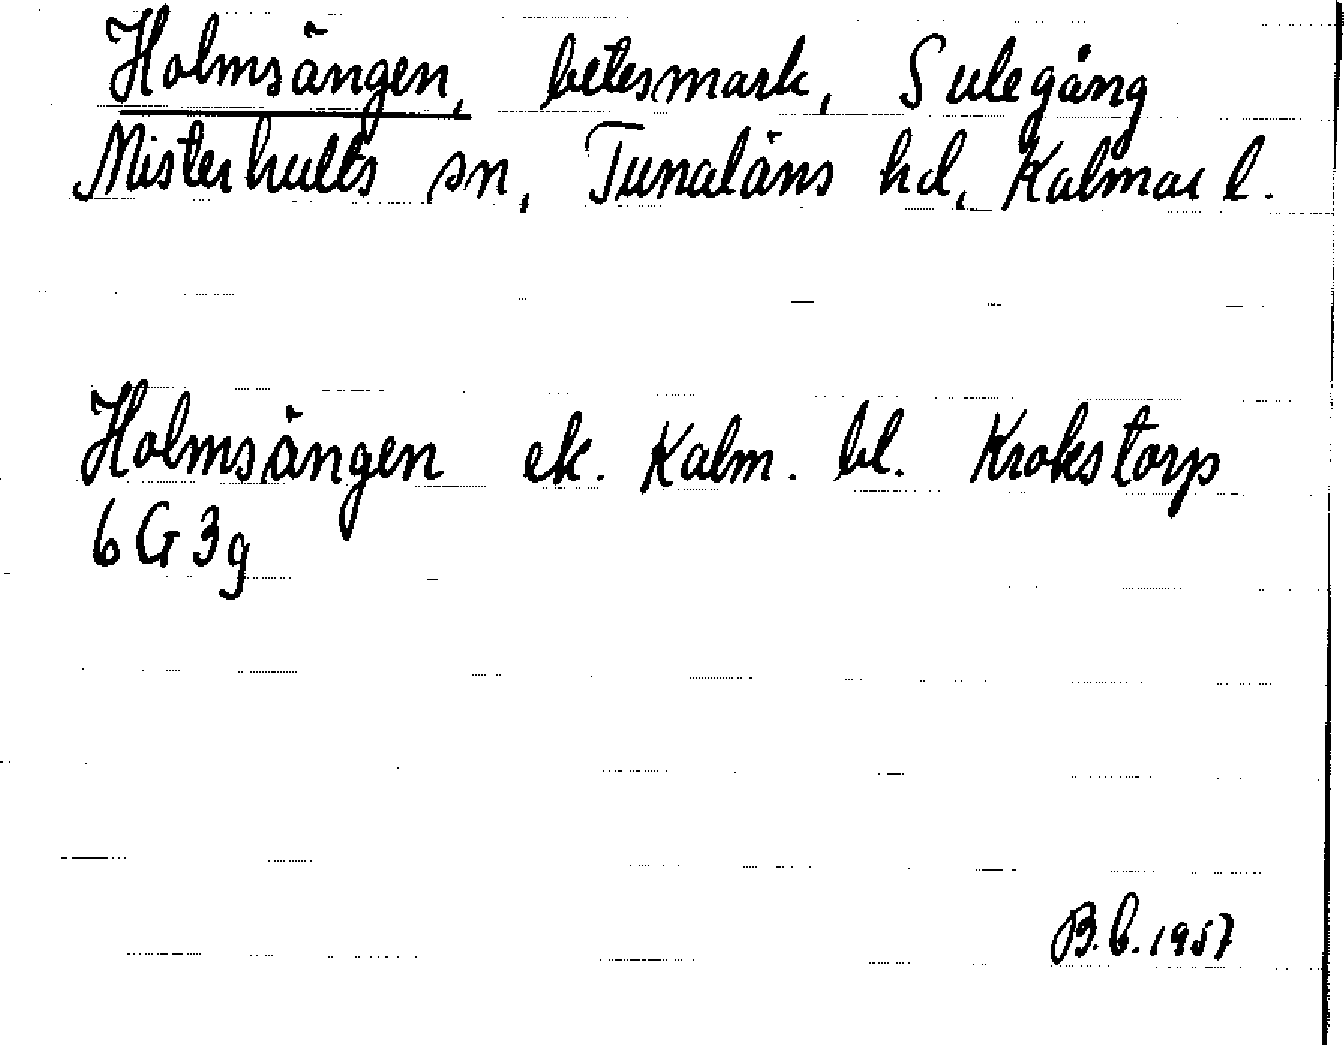 Holmsängen, betesmark, Sulegång
Misterhults sn, Tunaläns hd, Kalmar l.
Holmsängen ek. Kalm. bl. Krokstorp
6 G 3g
B.b. 1957